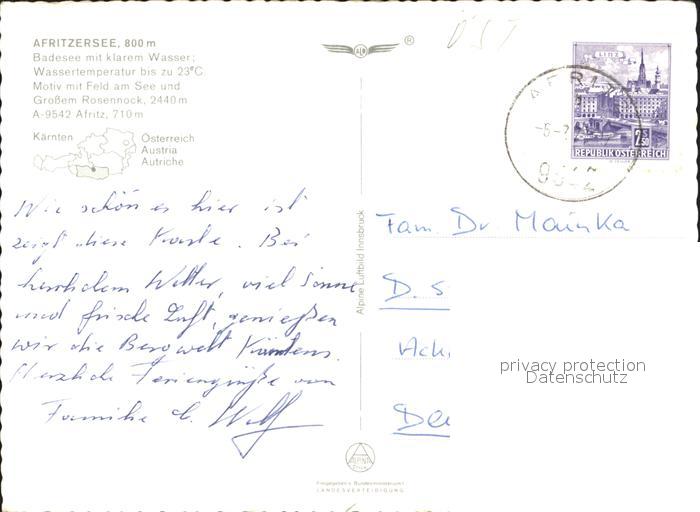 AFRITZERSEE, 800 m
Badesee mit klarem Wasser;
Wassertemperatur bis zu 23°C.
Motiv mit Feld am See und
Großem Rosennock, 2440 m
A-9542 Afritz, 710 m
Kärnten
Österreich
Austria
Autriche
Wie schön es hier ist
zeigt diese Karte. Bei
herrlichem Wetter, viel Sonne
und frische Luft, genießen
wir die Bergwelt Kärntens.
Herzliche Feriengrüße von
Familie d. Wolf
Alpine Luftbild Innsbruck
®
LINZ
S 2.50
REPUBLIK ÖSTERREICH
AFRITZ
9542
Fam. Dr. Mainka
D. S
Ach
De
privacy protection
Datenschutz
ALPINE
Freigegeben v. Bundesministerium f.
LANDESVERTEIDIGUNG